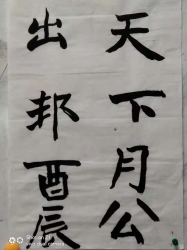 天下月公
出邦酉辰